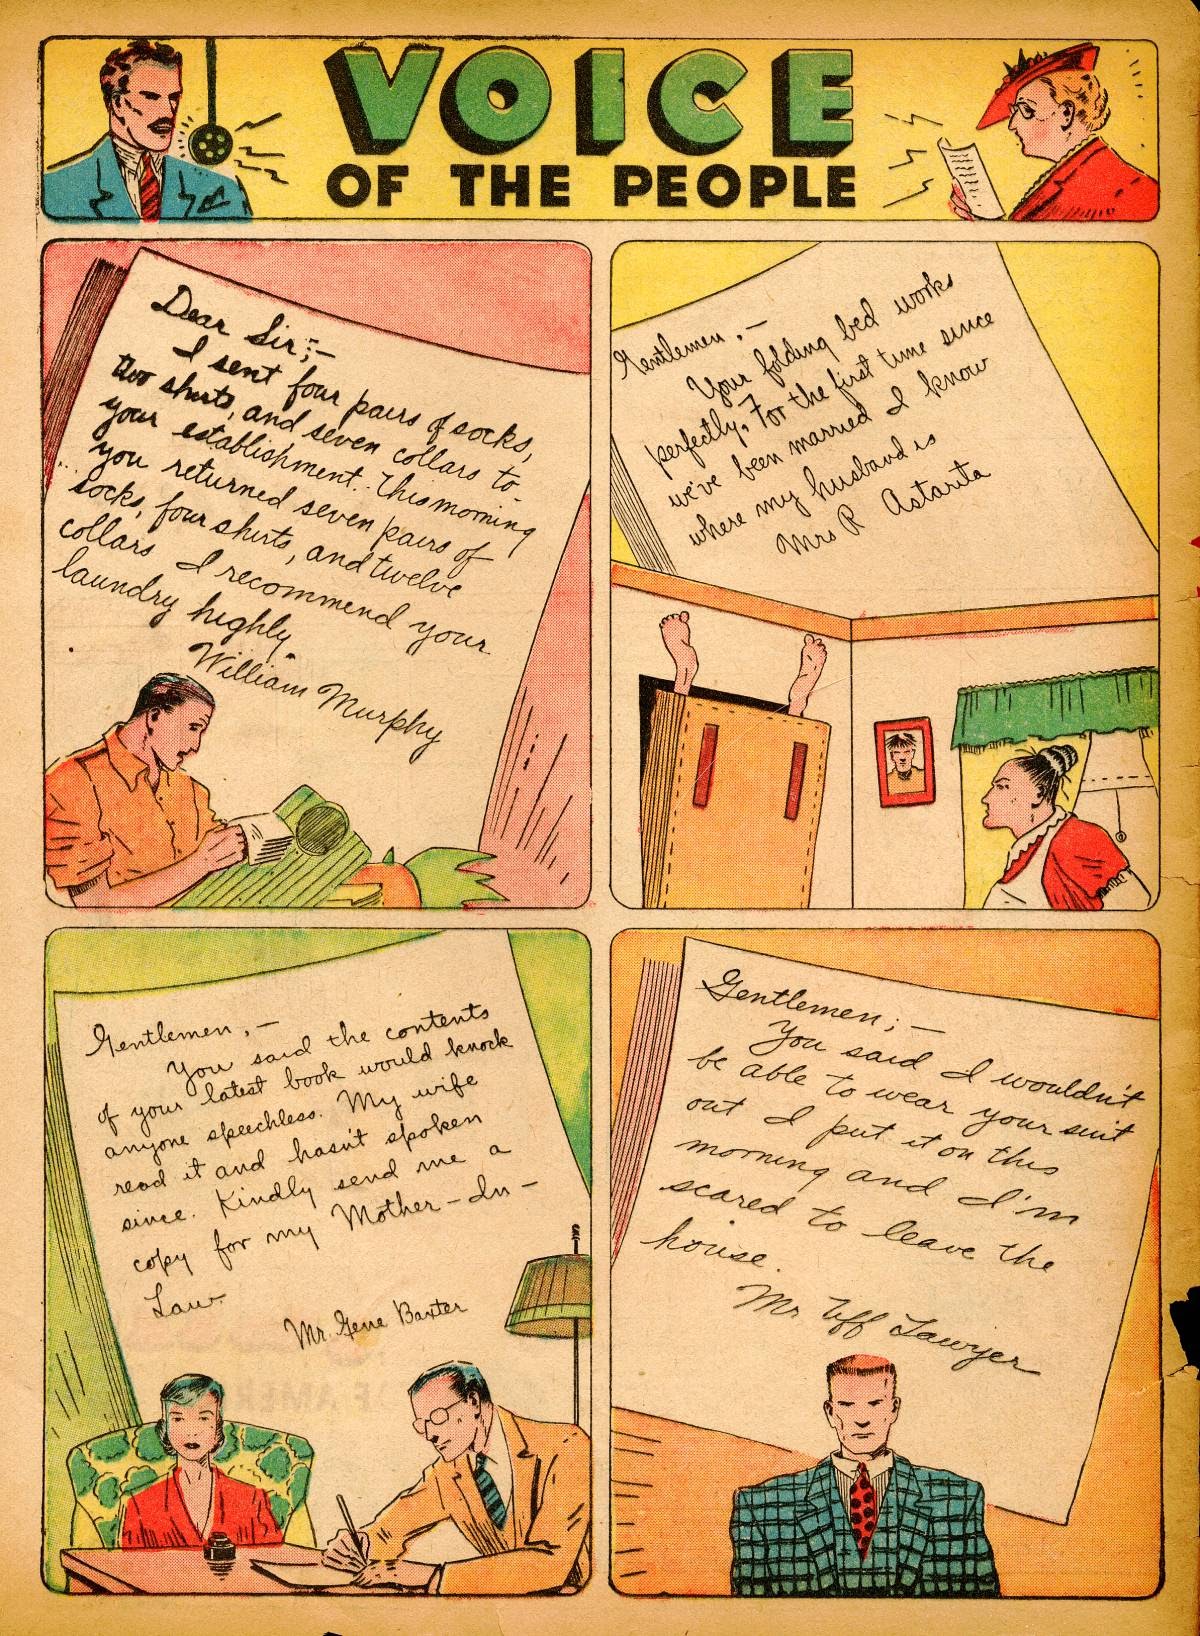 VOICE
OF THE PEOPLE
Dear Sir;-
I sent four pairs of socks,
two shirts, and seven collars to
your establishment. This morning
you returned seven pairs of
socks, four shirts, and twelve
collars I recommend your
laundry highly.
William Murphy
Gentlemen,-
Your folding bed works
perfectly. For the first time since
we've been married I know
where my husband is
Mrs R Astarita
Gentlemen,-
You said the contents
of your latest book would knock
anyone speechless. My wife
read it and hasn't spoken
since. Kindly send me a
copy for my Mother-In-
Law.
Mr. Gene Baxter
Gentlemen;-
You said I wouldn't
be able to wear your suit
out I put it on this
morning and I'm
scared to leave the
house.
Mr Uff Lawyer